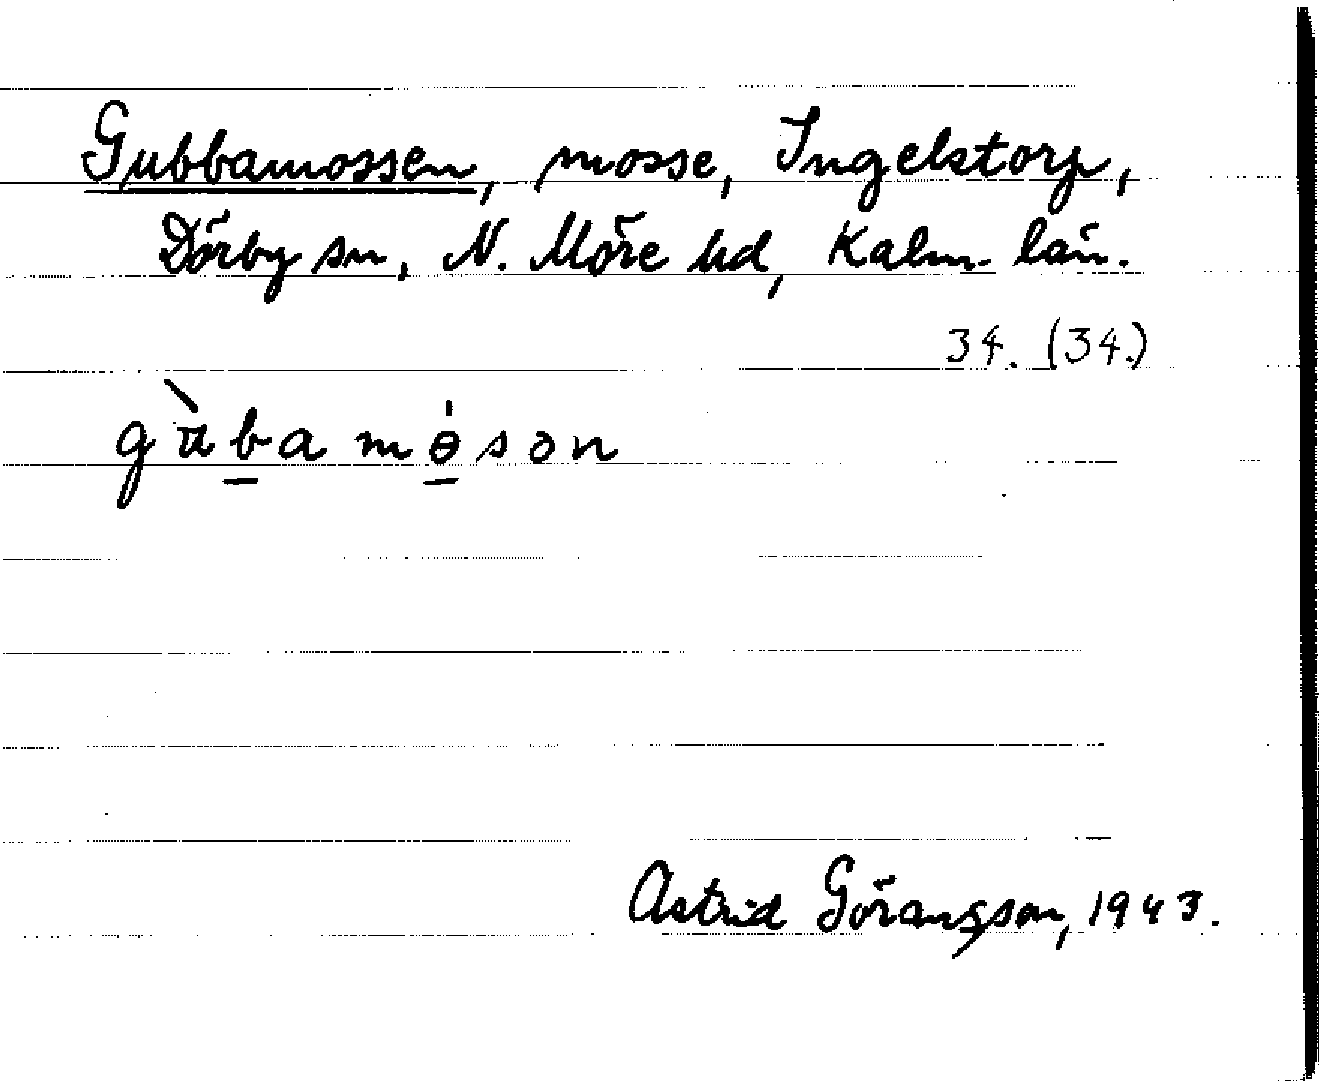 Gubbamossen, mosse, Ingelstorp,
Dörby sn, N. Möre hd, Kalm. län.
34. (34.)
gùb̲amɵ̲́sən
Astrid Göransson, 1943.